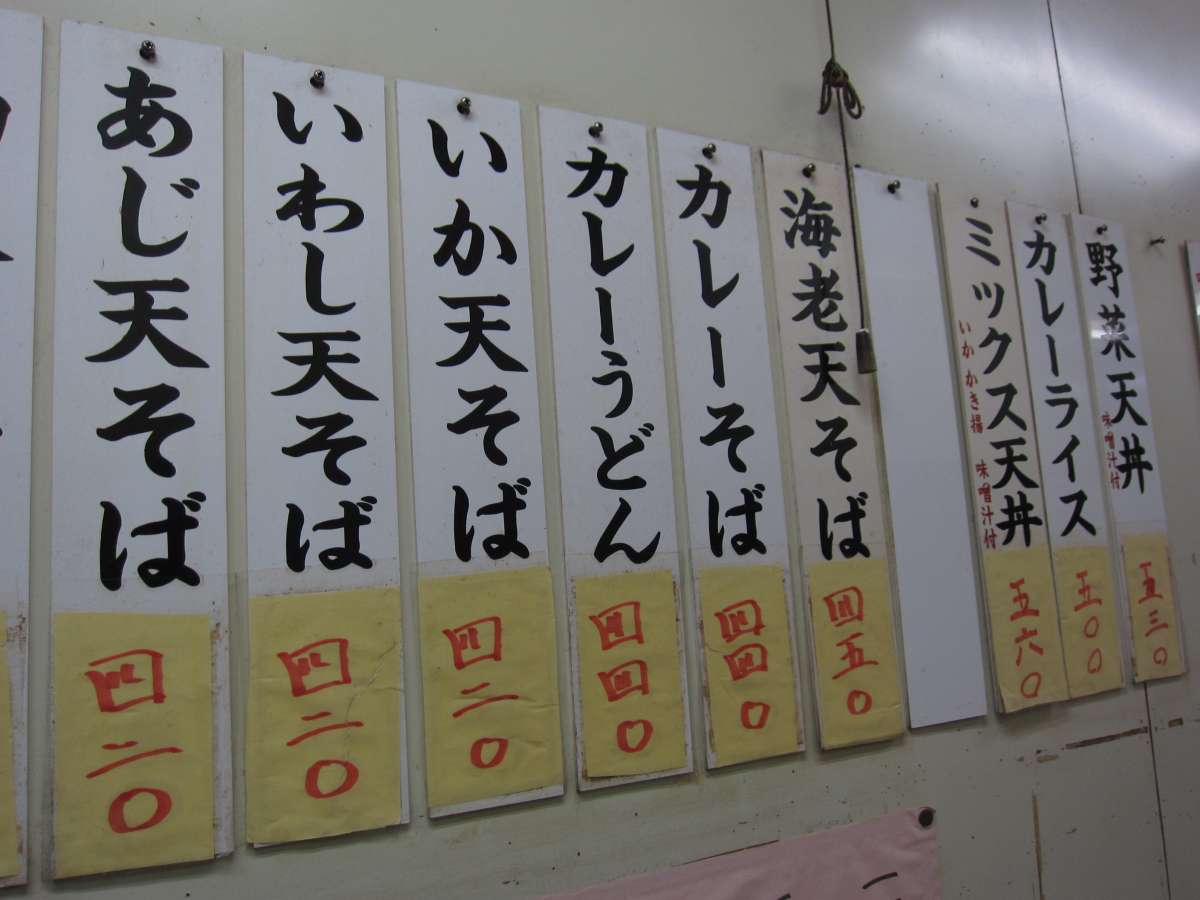 野菜天丼
味噌汁付
五三〇
カレーライス
五〇〇
ミックス天丼
いか かき揚 味噌汁付
五六〇
海老天そば
四五〇
カレーそば
四四〇
カレーうどん
四四〇
いか天そば
四二〇
いわし天そば
四二〇
あじ天そば
四二〇